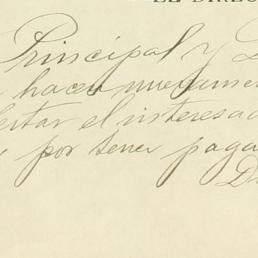 EL DIREC
Principal y D
hacen nuevamen
el interesad
por tener paga
D